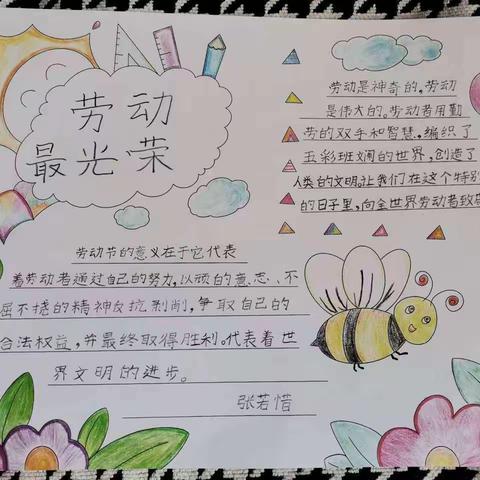 劳动
最光荣
劳动是神奇的,劳动
是伟大的。劳动者用勤
劳的双手和智慧,编织了
五彩班斓的世界,创造了
人类的文明。让我们在这个特别
的日子里,向全世界劳动者致敬
劳动节的意义在于它代表
着劳动者通过自己的努力,以顽的意志、不
屈不挠的精神反抗剥削,争取自己的
合法权益,并最终取得胜利。代表着世
界文明的进步。
张若惜